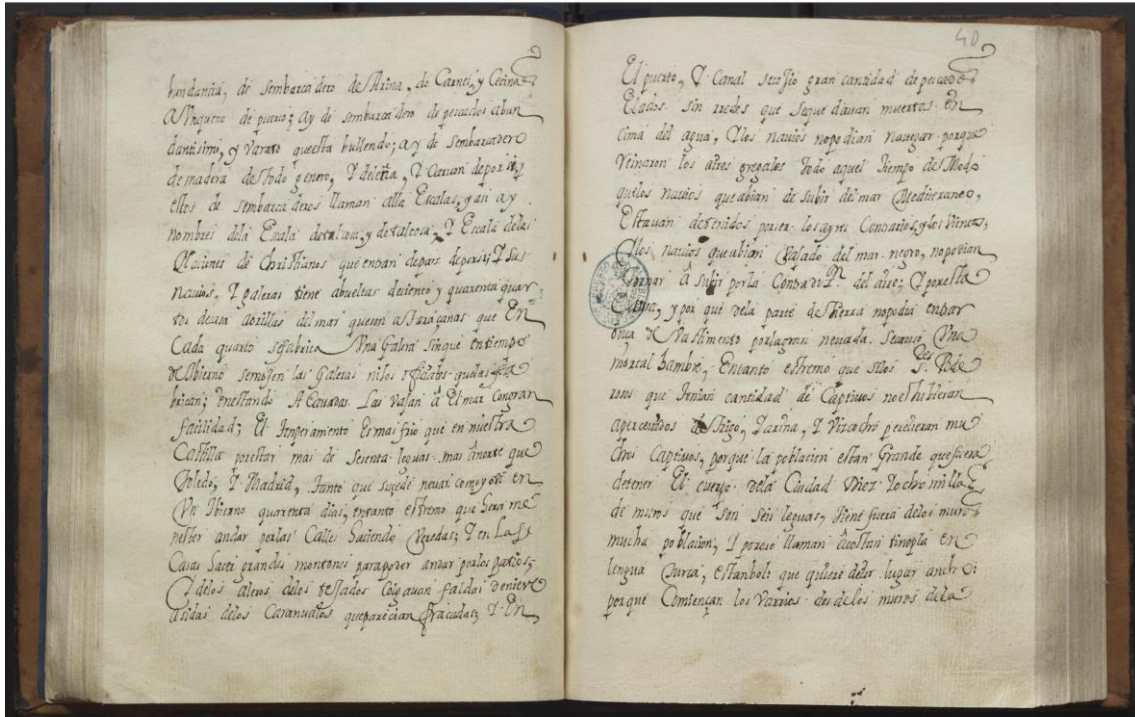 bundancia, de sembarcadero de Arina, de Carnes, y Cecina
ay de sembarcadero de pescados abun
dantisimo, y varato questa bullendo; ay de sembarcadero
de madera de todo genero, I de leña, I Carvon de por si; y
estos de sembarcaderos llaman alla Escalas, y asi ay
nombres de la Escala y de I Escala de las
Naciones de Christianos que entran de paz de por si; I sus
navios, I galeras tiene abueltas deciento y quarenta quar
tos de casa a orillas del mar que son ataraçanas que En
Cada quarto sefabrica Una Galera sinque entiempo
de Ibierno semojen las Galeras nilos oficiales quelas fa
brican; Enestando Acavadas Las Vajan â El mar Congran
facilidad; El Temperamento Es mas frio que en nuestra
Castilla porestar mas de Sesenta leguas mas ânorte que
Toledo, I Madrid, tanto que sucede nevar como yo vi en
Un Ibierno quarenta dias, entanto estremo que hera me
nester andar porlas Calles haciendo Veredas; I en Las
Casas hacer grandes montones parapoder andar porlos patios;
I delos aleros delos tejados Colgavan faldas de nieve
asidas delos queparecian I En
40
El puerto, I Canal secojio gran cantidad de pescados
Elados sin redes que sequedavan muertos en
cima del agua, I los navios nopodian navegar porque
Reinaron los aires gregales todo aquel tiempo de Modo
quelos navios que abian de subir del mar Mediterraneo,
Estavan detenidos porser los ayres Contrarios, y los Vientos,
I los navios que abian Vajado del mar negro, nopodian
tornar â subir porla Contradi.on del aire; I poresta
Causa, y por que dela parte de tierra nopodia entrar
Vastimento porlagran nevada. Secauso Una
mortal hambre, Entanto estremo que silos S.res
que tenian cantidad de Captivos no estubieran
apercevidos de trigo, I arina, I Vizcocho perecieran mu
chos Captivos, porque la poblacion es tan Grande que fuera
de tener El cuerpo dela Ciudad Diez I ocho millas
de muros que son seis leguas, tiene fuera delos muros
mucha poblacion, I poreso llaman âcostantinopla en
lengua turca, estanboli que quiere decir lugar ancho
porque Comiençan los Varrios desdelos muros dela